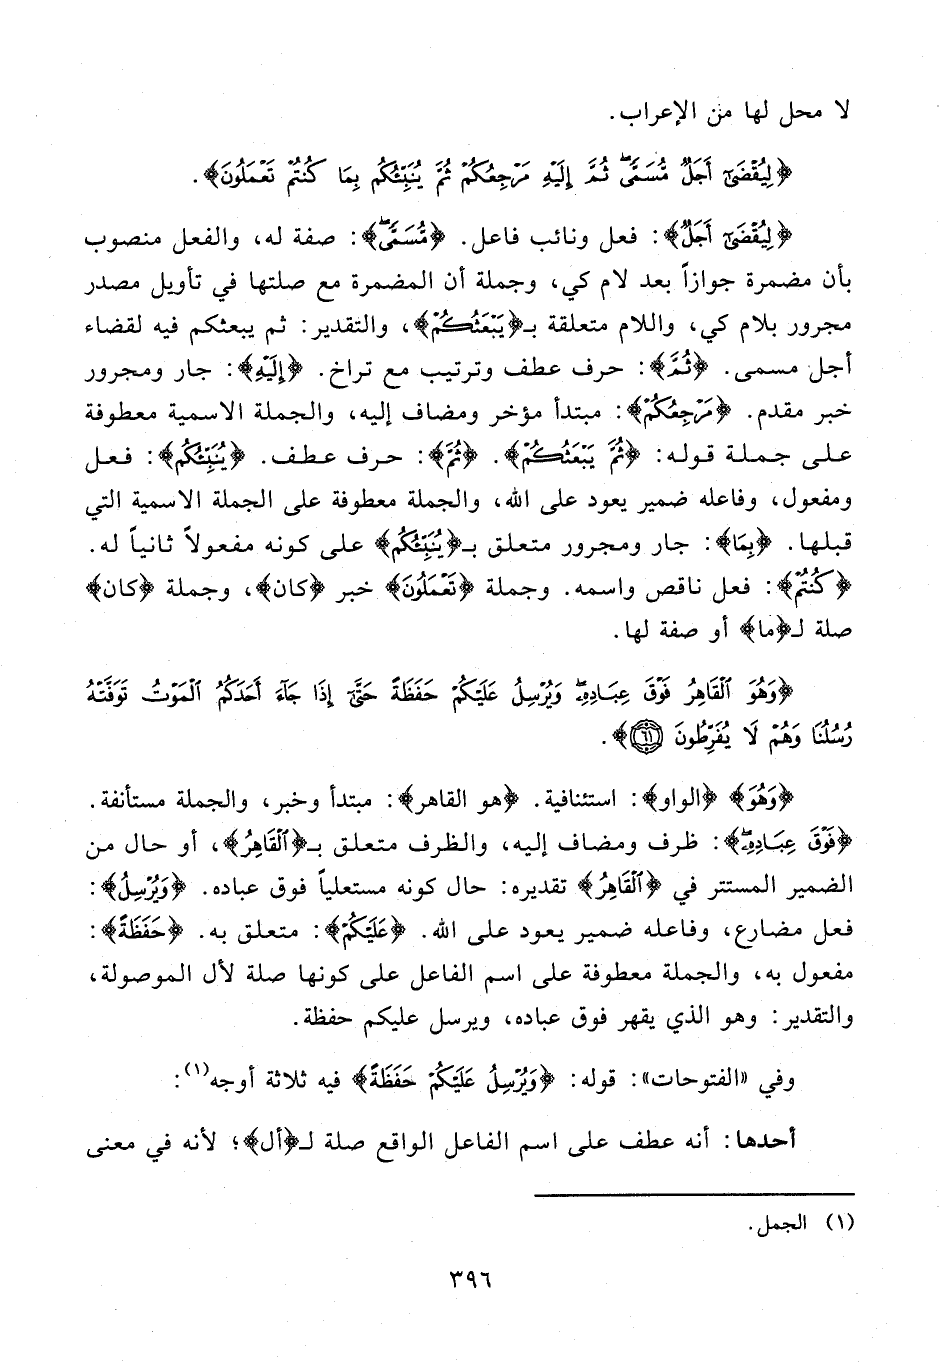 لا محل لها من الإعراب.
﴿لِيُقْضَىٰٓ أَجَلٌ مُّسَمًّىۖ ثُمَّ إِلَيْهِ مَرْجِعُكُمْ ثُمَّ يُنَبِّئُكُم بِمَا كُنتُمْ تَعْمَلُونَ﴾.
﴿لِيُقْضَىٰٓ أَجَلٌ﴾: فعل ونائب فاعل. ﴿مُّسَمًّىۖ﴾: صفة له، والفعل منصوب
بأن مضمرة جوازاً بعد لام كي، وجملة أن المضمرة مع صلتها في تأويل مصدر
مجرور بلام كي، واللام متعلقة بـ﴿يَبْعَثُكُمْ﴾، والتقدير: ثم يبعثكم فيه لقضاء
أجل مسمى. ﴿ثُمَّ﴾: حرف عطف وترتيب مع تراخ. ﴿إِلَيْهِ﴾: جار ومجرور
خبر مقدم. ﴿مَرْجِعُكُمْ﴾: مبتدأ مؤخر ومضاف إليه، والجملة الاسمية معطوفة
على جملة قوله: ﴿ثُمَّ يَبْعَثُكُمْ﴾. ﴿ثُمَّ﴾: حرف عطف. ﴿يُنَبِّئُكُم﴾: فعل
ومفعول، وفاعله ضمير يعود على الله، والجملة معطوفة على الجملة الاسمية التي
قبلها. ﴿بِمَا﴾: جار ومجرور متعلق بـ﴿يُنَبِّئُكُم﴾ على كونه مفعولاً ثانياً له.
﴿كُنتُمْ﴾: فعل ناقص واسمه. وجملة ﴿تَعْمَلُونَ﴾ خبر ﴿كان﴾، وجملة ﴿كان﴾
صلة لـ﴿ما﴾ أو صفة لها.
﴿وَهُوَ ٱلْقَاهِرُ فَوْقَ عِبَادِهِۦۖ وَيُرْسِلُ عَلَيْكُمْ حَفَظَةً حَتَّىٰٓ إِذَا جَآءَ أَحَدَكُمُ ٱلْمَوْتُ تَوَفَّتْهُ
رُسُلُنَا وَهُمْ لَا يُفَرِّطُونَ ٦١﴾.
﴿وَهُوَ﴾ ﴿الواو﴾: استئنافية. ﴿هو القاهر﴾: مبتدأ وخبر، والجملة مستأنفة.
﴿فَوْقَ عِبَادِهِۦۖ﴾: ظرف ومضاف إليه، والظرف متعلق بـ﴿ٱلْقَاهِرُ﴾، أو حال من
الضمير المستتر في ﴿ٱلْقَاهِرُ﴾ تقديره: حال كونه مستعلياً فوق عباده. ﴿وَيُرْسِلُ﴾:
فعل مضارع، وفاعله ضمير يعود على الله. ﴿عَلَيْكُمْ﴾: متعلق به. ﴿حَفَظَةً﴾:
مفعول به، والجملة معطوفة على اسم الفاعل على كونها صلة لأل الموصولة،
والتقدير: وهو الذي يقهر فوق عباده، ويرسل عليكم حفظة.
وفي «الفتوحات»: قوله: ﴿وَيُرْسِلُ عَلَيْكُمْ حَفَظَةً﴾ فيه ثلاثة أوجه(١):
أحدها: أنه عطف على اسم الفاعل الواقع صلة لـ﴿أل﴾؛ لأنه في معنى
(١) الجمل.
٣٩٦